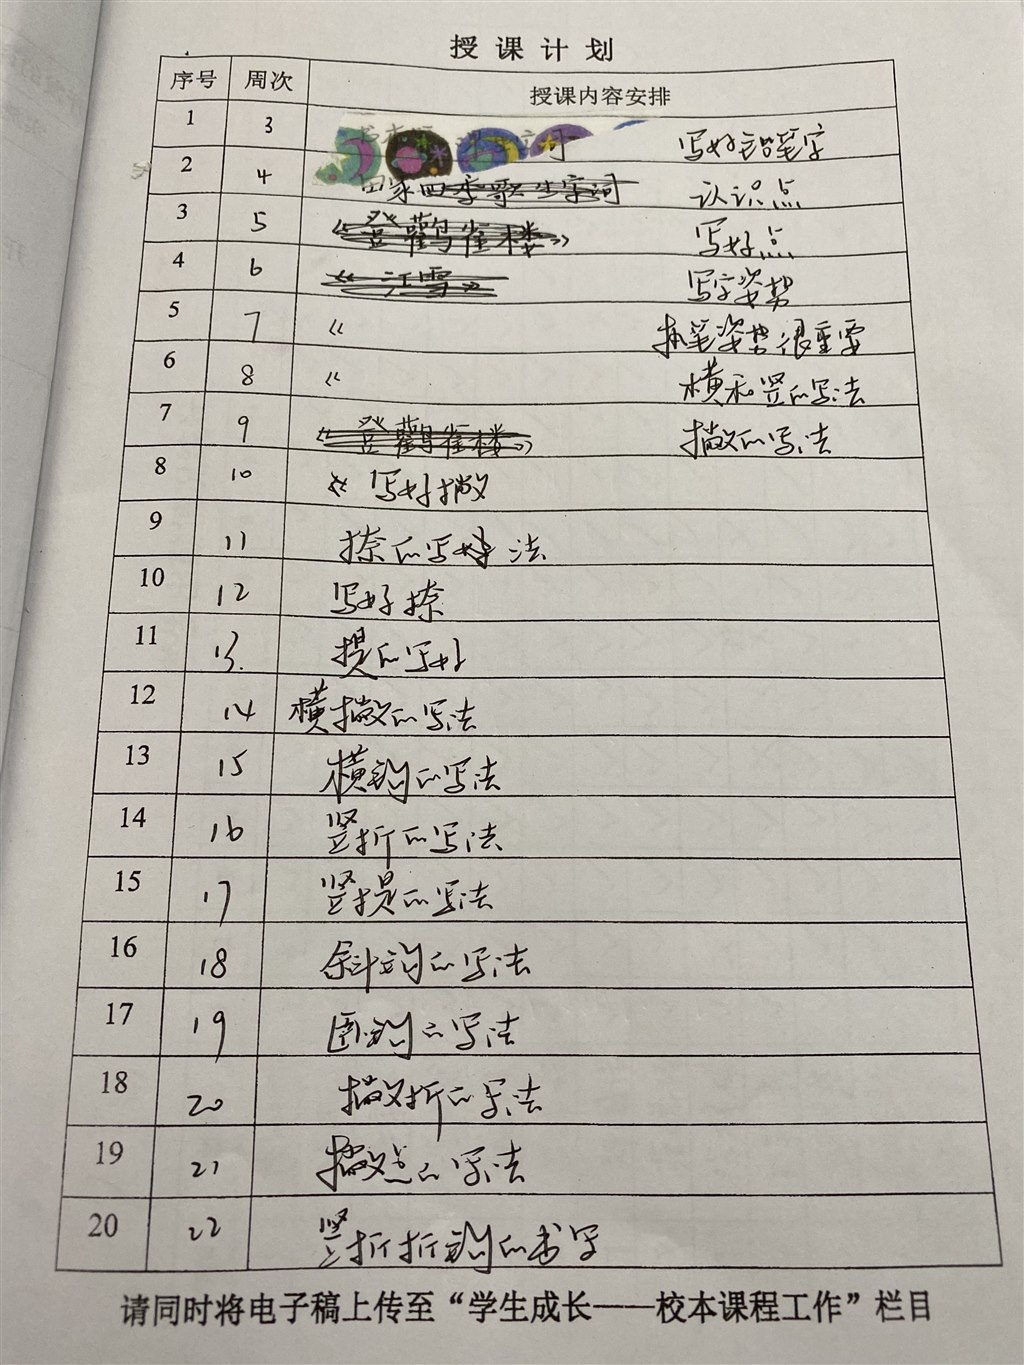 授课计划
序号 周次 授课内容安排
1 3 写好铅笔字
2 4 田家四季歌 生字词 认识点
3 5 《登鹳雀楼》 写好点
4 6 《江雪》 写字姿势
5 7 《 执笔姿势很重要
6 8 《 横和竖的写法
7 9 《登鹳雀楼》 撇的写法
8 10 《 写好撇
9 11 捺的写好法
10 12 写好捺
11 13 提的写好
12 14 横撇的写法
13 15 横钩的写法
14 16 竖折的写法
15 17 竖提的写法
16 18 斜钩的写法
17 19 钩的写法
18 20 撇折的写法
19 21 撇点的写法
20 22 竖折折钩的书写
请同时将电子稿上传至“学生成长——校本课程工作”栏目